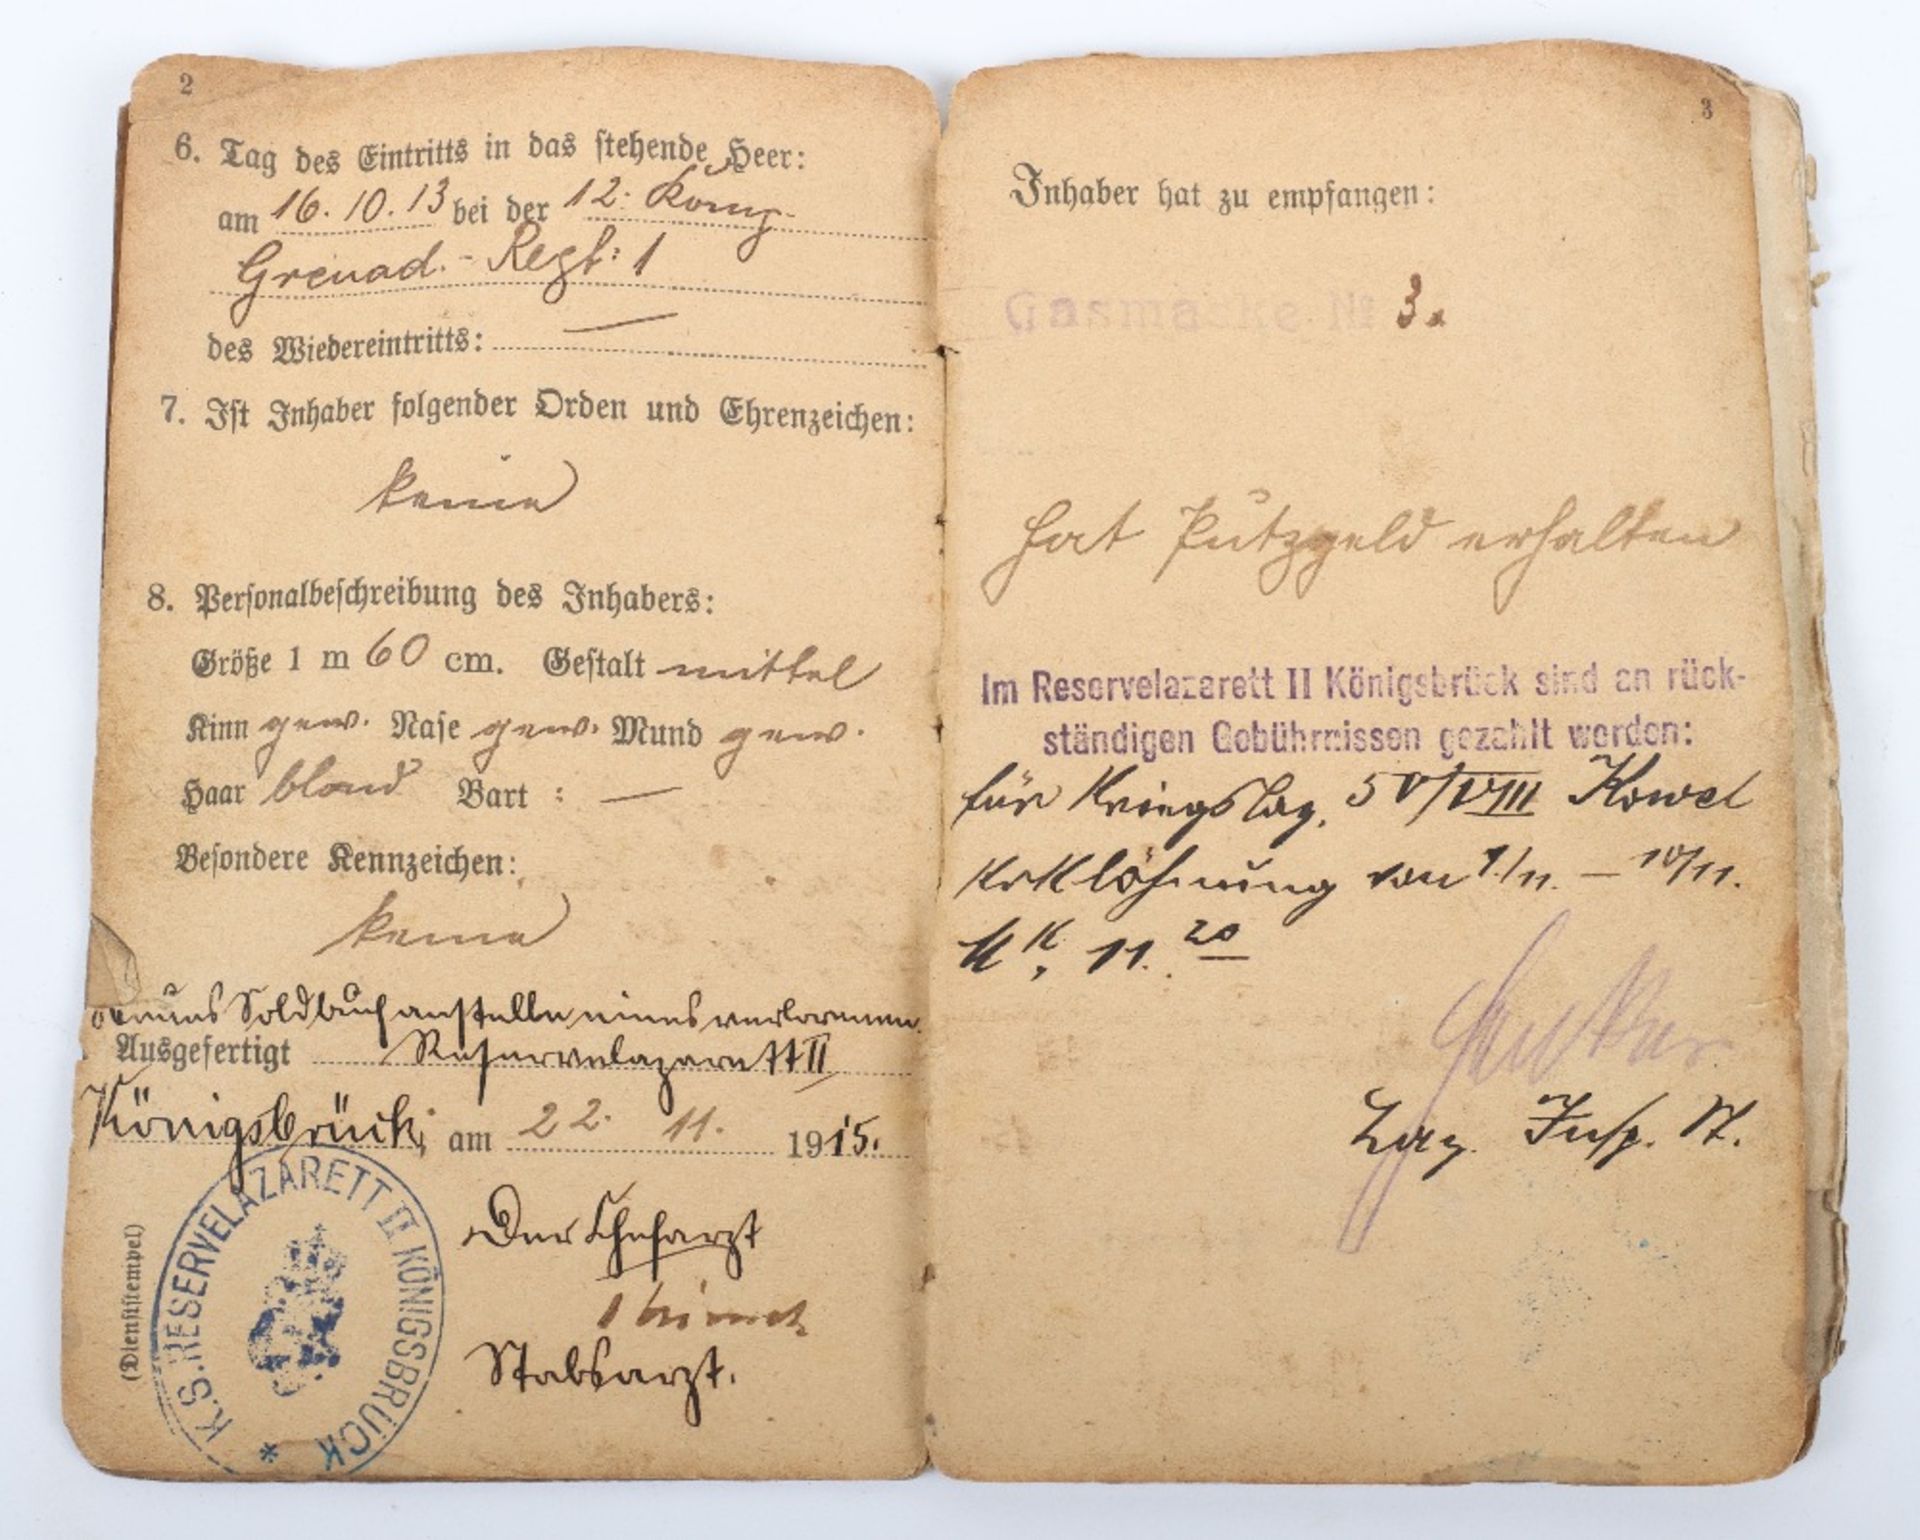 2
6. Tag des Eintritts in das stehende Heer:
am 16. 10. 13 bei der 12. König-
Grenad.-Regt: 1
des Wiedereintritts: —
7. Ist Inhaber folgender Orden und Ehrenzeichen:
keine
8. Personalbeschreibung des Inhabers:
Größe 1 m 60 cm. Gestalt mittel
Kinn gew. Nase gew. Mund gew.
Haar blond Bart : —
Besondere Kennzeichen:
keine
neues Soldbuch anstelle eines verlorenen
Ausgefertigt Reservelazarett II
Königsbrück, am 22. 11. 1915.
(Dienststempel)
K.S. RESERVELAZARETT II KÖNIGSBRÜCK *
Der Chefarzt
Stabsarzt.
3
Inhaber hat zu empfangen:
Gasmaske No 3.
hat Putzgeld erhalten
Im Reservelazarett II Königsbrück sind an rück-
ständigen Gebührnissen gezahlt worden:
für Kriegslaz. Kowel
löhnung von 1/11. – 10/11.
11. 20
Laz. Insp. St.